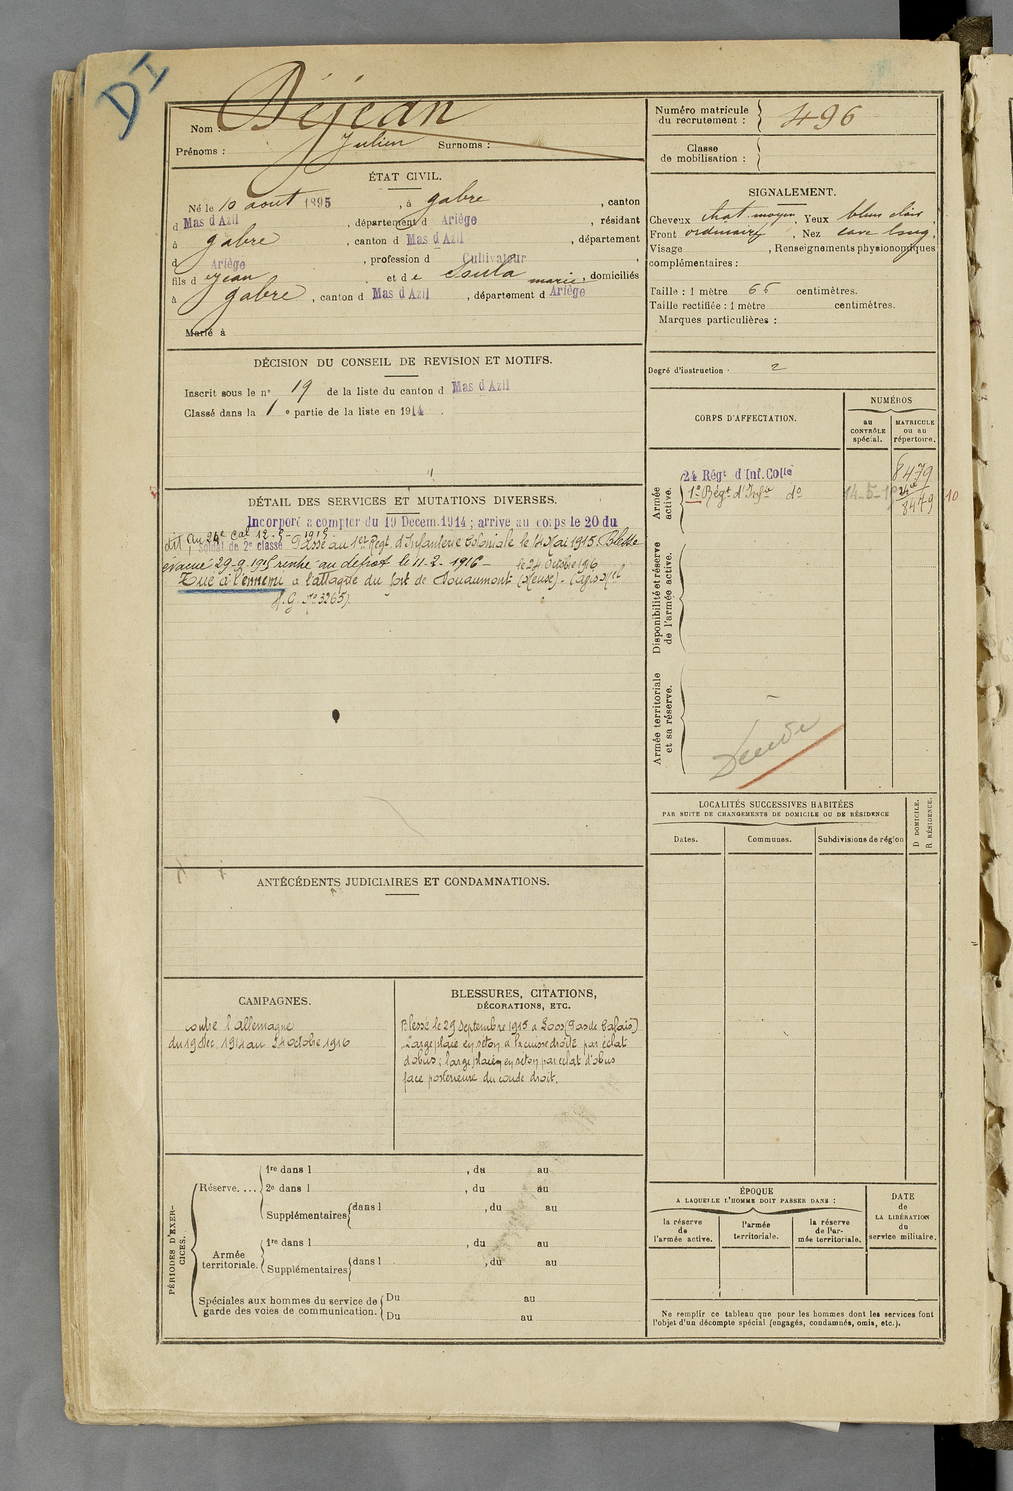 DI
Nom : Déjean
Prénoms : Julien Surnoms :
Numéro matricule du recrutement : 496
Classe de mobilisation :
ÉTAT CIVIL.
Né le 10 aout 1895, à gabre, canton
d Mas d'Azil, département d Ariège, résidant
à gabre, canton d Mas d'Azil, département
d Ariège, profession d Cultivateur,
fils d ejean et de marie, domiciliés
à gabre, canton d Mas d'Azil, département d Ariège
Marié à
SIGNALEMENT.
Cheveux chat. moyen. Yeux bleus clair,
Front ordinaire, Nez cave long,
Visage , Renseignements physionomiques
complémentaires :
Taille : 1 mètre 66 centimètres.
Taille rectifiée : 1 mètre centimètres.
Marques particulières :
Degré d'instruction . 2
DÉCISION DU CONSEIL DE REVISION ET MOTIFS.
Inscrit sous le n° 19 de la liste du canton d Mas d'Azil
Classé dans la 1e partie de la liste en 1914.
DÉTAIL DES SERVICES ET MUTATIONS DIVERSES.
Incorporé à compter du 19 Décem. 1914 ; arrivé au corps le 20 du
dit, Soldat de 2e classe. Passé au 1er Regt d'Infanterie Coloniale le 14 Mai 1915. Blessé
évacué 29-9-1915 rentré au dépôt le 11-2-1916 - le 24 Octobre 1916
Tué à l'ennemi à l'attaque du fort de Douaumont (Meuse). (Avis Mel
H.G. No 3265).
CORPS D'AFFECTATION.
NUMÉROS
au CONTRÔLE spécial.
MATRICULE ou au répertoire.
Armée active.
24 Régt d'Inf. Colle 8479
1er Régt d'Infie do 14-5-15 8479
10
Disponibilité et réserve de l'armée active.
Armée territoriale et sa réserve.
Décédé
LOCALITÉS SUCCESSIVES HABITÉES
PAR SUITE DE CHANGEMENTS DE DOMICILE OU DE RÉSIDENCE
Dates. Communes. Subdivisions de région
D DOMICILE.
R RÉSIDENCE.
ANTÉCÉDENTS JUDICIAIRES ET CONDAMNATIONS.
CAMPAGNES.
contre l'allemagne
du 19 Déc. 1914 au 24 octobre 1916
BLESSURES, CITATIONS,
DÉCORATIONS, ETC.
Blessé le 29 septembre 1915 à Loos (Pas de Calais)
Large plaie en séton à la cuisse droite par éclat
d'obus ; large plaie en séton par éclat d'obus
face postérieure du coude droit.
PÉRIODES D'EXERCICES.
Réserve....
1re dans l , du au
2e dans l , du au
Supplémentaires dans l , du au
Armée territoriale.
1re dans l , du au
Supplémentaires dans l , du au
Spéciales aux hommes du service de garde des voies de communication.
Du au
Du au
ÉPOQUE
A LAQUELLE L'HOMME DOIT PASSER DANS :
la réserve de l'armée active.
l'armée territoriale.
la réserve de l'armée territoriale.
DATE de LA LIBÉRATION du service militaire.
Ne remplir ce tableau que pour les hommes dont les services font
l'objet d'un décompte spécial (engagés, condamnés, omis, etc.).